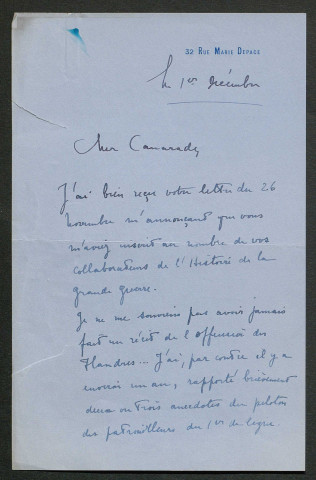 32 Rue Marie Depage
le 1er décembre
Cher Camarade,
J'ai bien reçu votre lettre du 26
novembre m'annonçant que vous
m'aviez inscrit au nombre de vos
collaborateurs de l'Histoire de la
grande guerre.
Je ne me souviens pas avoir jamais
fait un récit de l'offensive des
Flandres... J'ai, par contre il y a
environ un an, rapporté brièvement
deux ou trois anecdotes du peloton
des patrouilleurs du 1er de ligne.